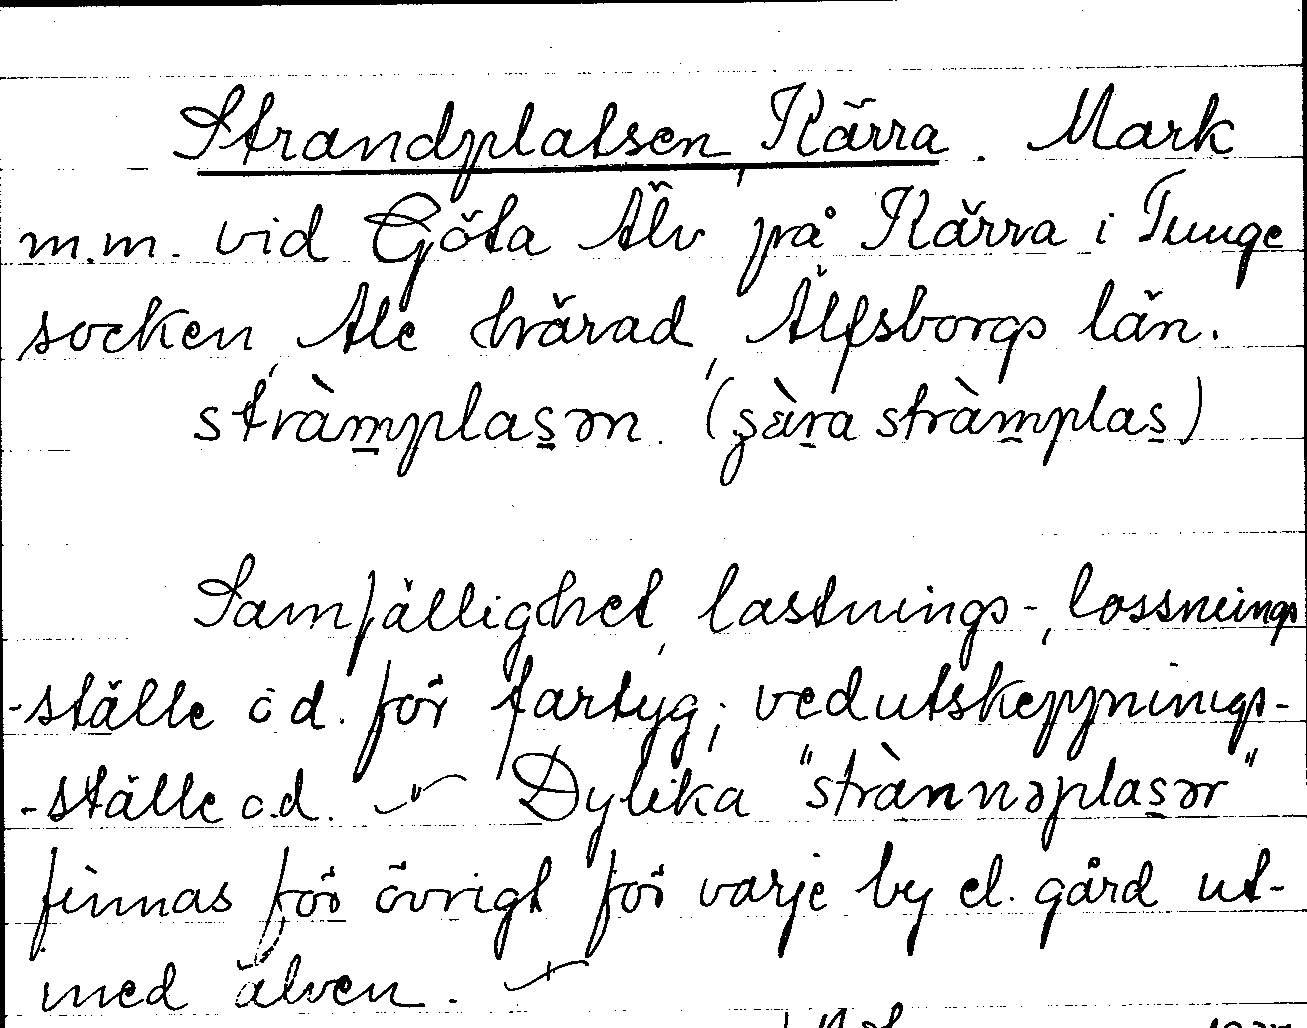 Strandplatsen, Kärra. Mark
m.m. vid Göta Älv på Kärra i Tunge
socken, Ale härad, Älfsborgs län.
stràm̱plas̱ən. (ʂæ̀ṟa stràm̱plas̱)
Samfällighet, lastnings-, lossnings
-ställe o d. för fartyg; vedutskeppnings-
-ställe o.d. — Dylika "strànnəplas̱ər"
finnas för övrigt för varje by el. gård ut-
med älven. —